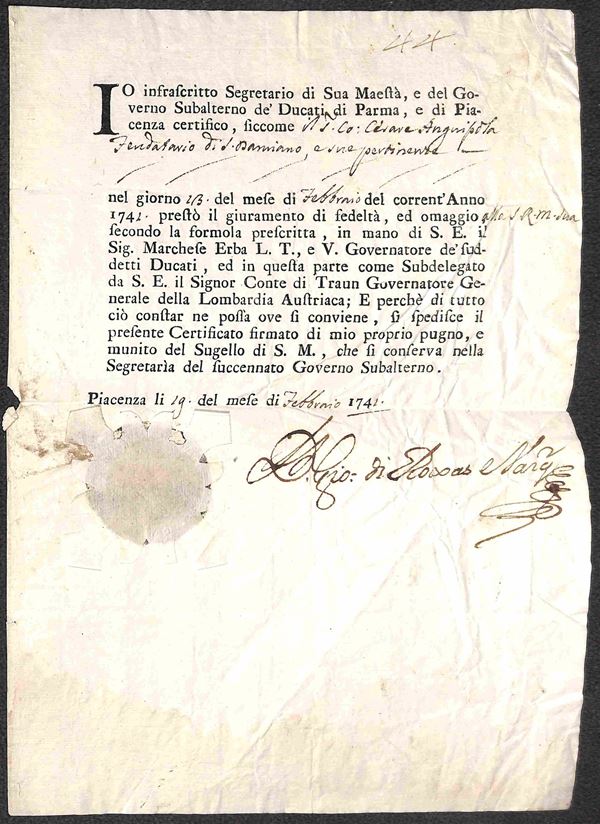 44.
IO infrascritto Segretario di Sua Maestà, e del Go-
verno Subalterno de' Ducati di Parma, e di Pia-
cenza certifico, siccome Il S. Co: Cesare Anguissola
Feudatario di S. Damiano, e sue pertinenze
nel giorno 13. del mese di Febbraio del corrent'Anno
1741. prestò il giuramento di fedeltà, ed omaggio alla S. R. M. Sua
secondo la formola prescritta, in mano di S. E. il
Sig. Marchese Erba L. T., e V. Governatore de' sud-
detti Ducati, ed in questa parte come Subdelegato
da S. E. il Signor Conte di Traun Governatore Ge-
nerale della Lombardia Austriaca; E perchè di tutto
ciò constar ne possa ove si conviene, si spedisce il
presente Certificato firmato di mio proprio pugno, e
munito del Sugello di S. M., che si conserva nella
Segretarìa del succennato Governo Subalterno.
Piacenza li 19. del mese di Febbraio 1741.
D. Gio: di Roxas e